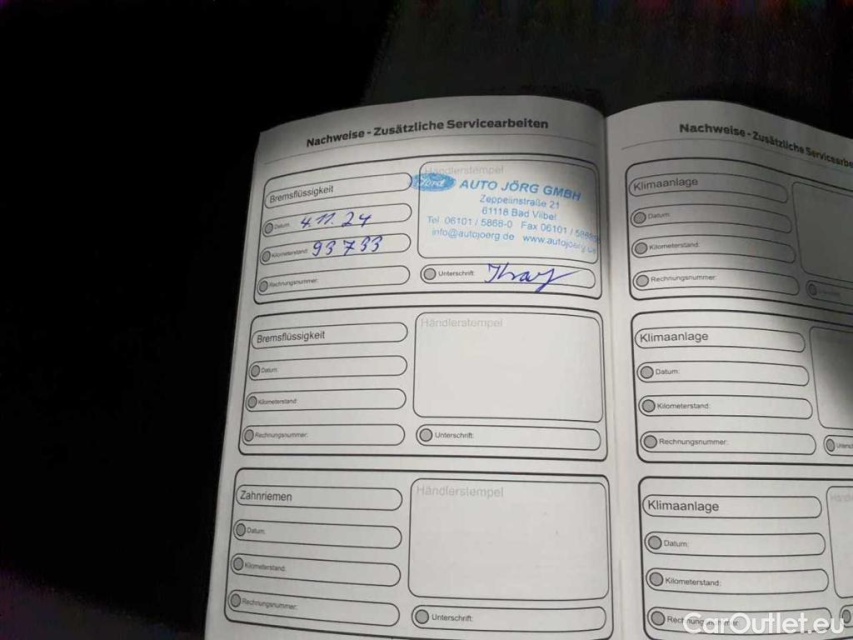 Nachweise - Zusätzliche Servicearbeiten
Bremsflüssigkeit
Datum: 4.11.24
Kilometerstand: 93733
Rechnungsnummer:
Händlerstempel
Ford AUTO JÖRG GMBH
Zeppelinstraße 21
61118 Bad Vilbel
Tel. 06101 / 5868-0 Fax 06101 /
info@autojoerg.de www.autojoerg.de
Unterschrift:
Bremsflüssigkeit
Datum:
Kilometerstand:
Rechnungsnummer:
Händlerstempel
Unterschrift:
Zahnriemen
Datum:
Kilometerstand:
Rechnungsnummer:
Händlerstempel
Unterschrift:
Nachweise - Zusätzliche Servicearbe
Klimaanlage
Datum:
Kilometerstand:
Rechnungsnummer:
Klimaanlage
Datum:
Kilometerstand:
Rechnungsnummer:
Klimaanlage
Datum:
Kilometerstand:
CarOutlet.eu